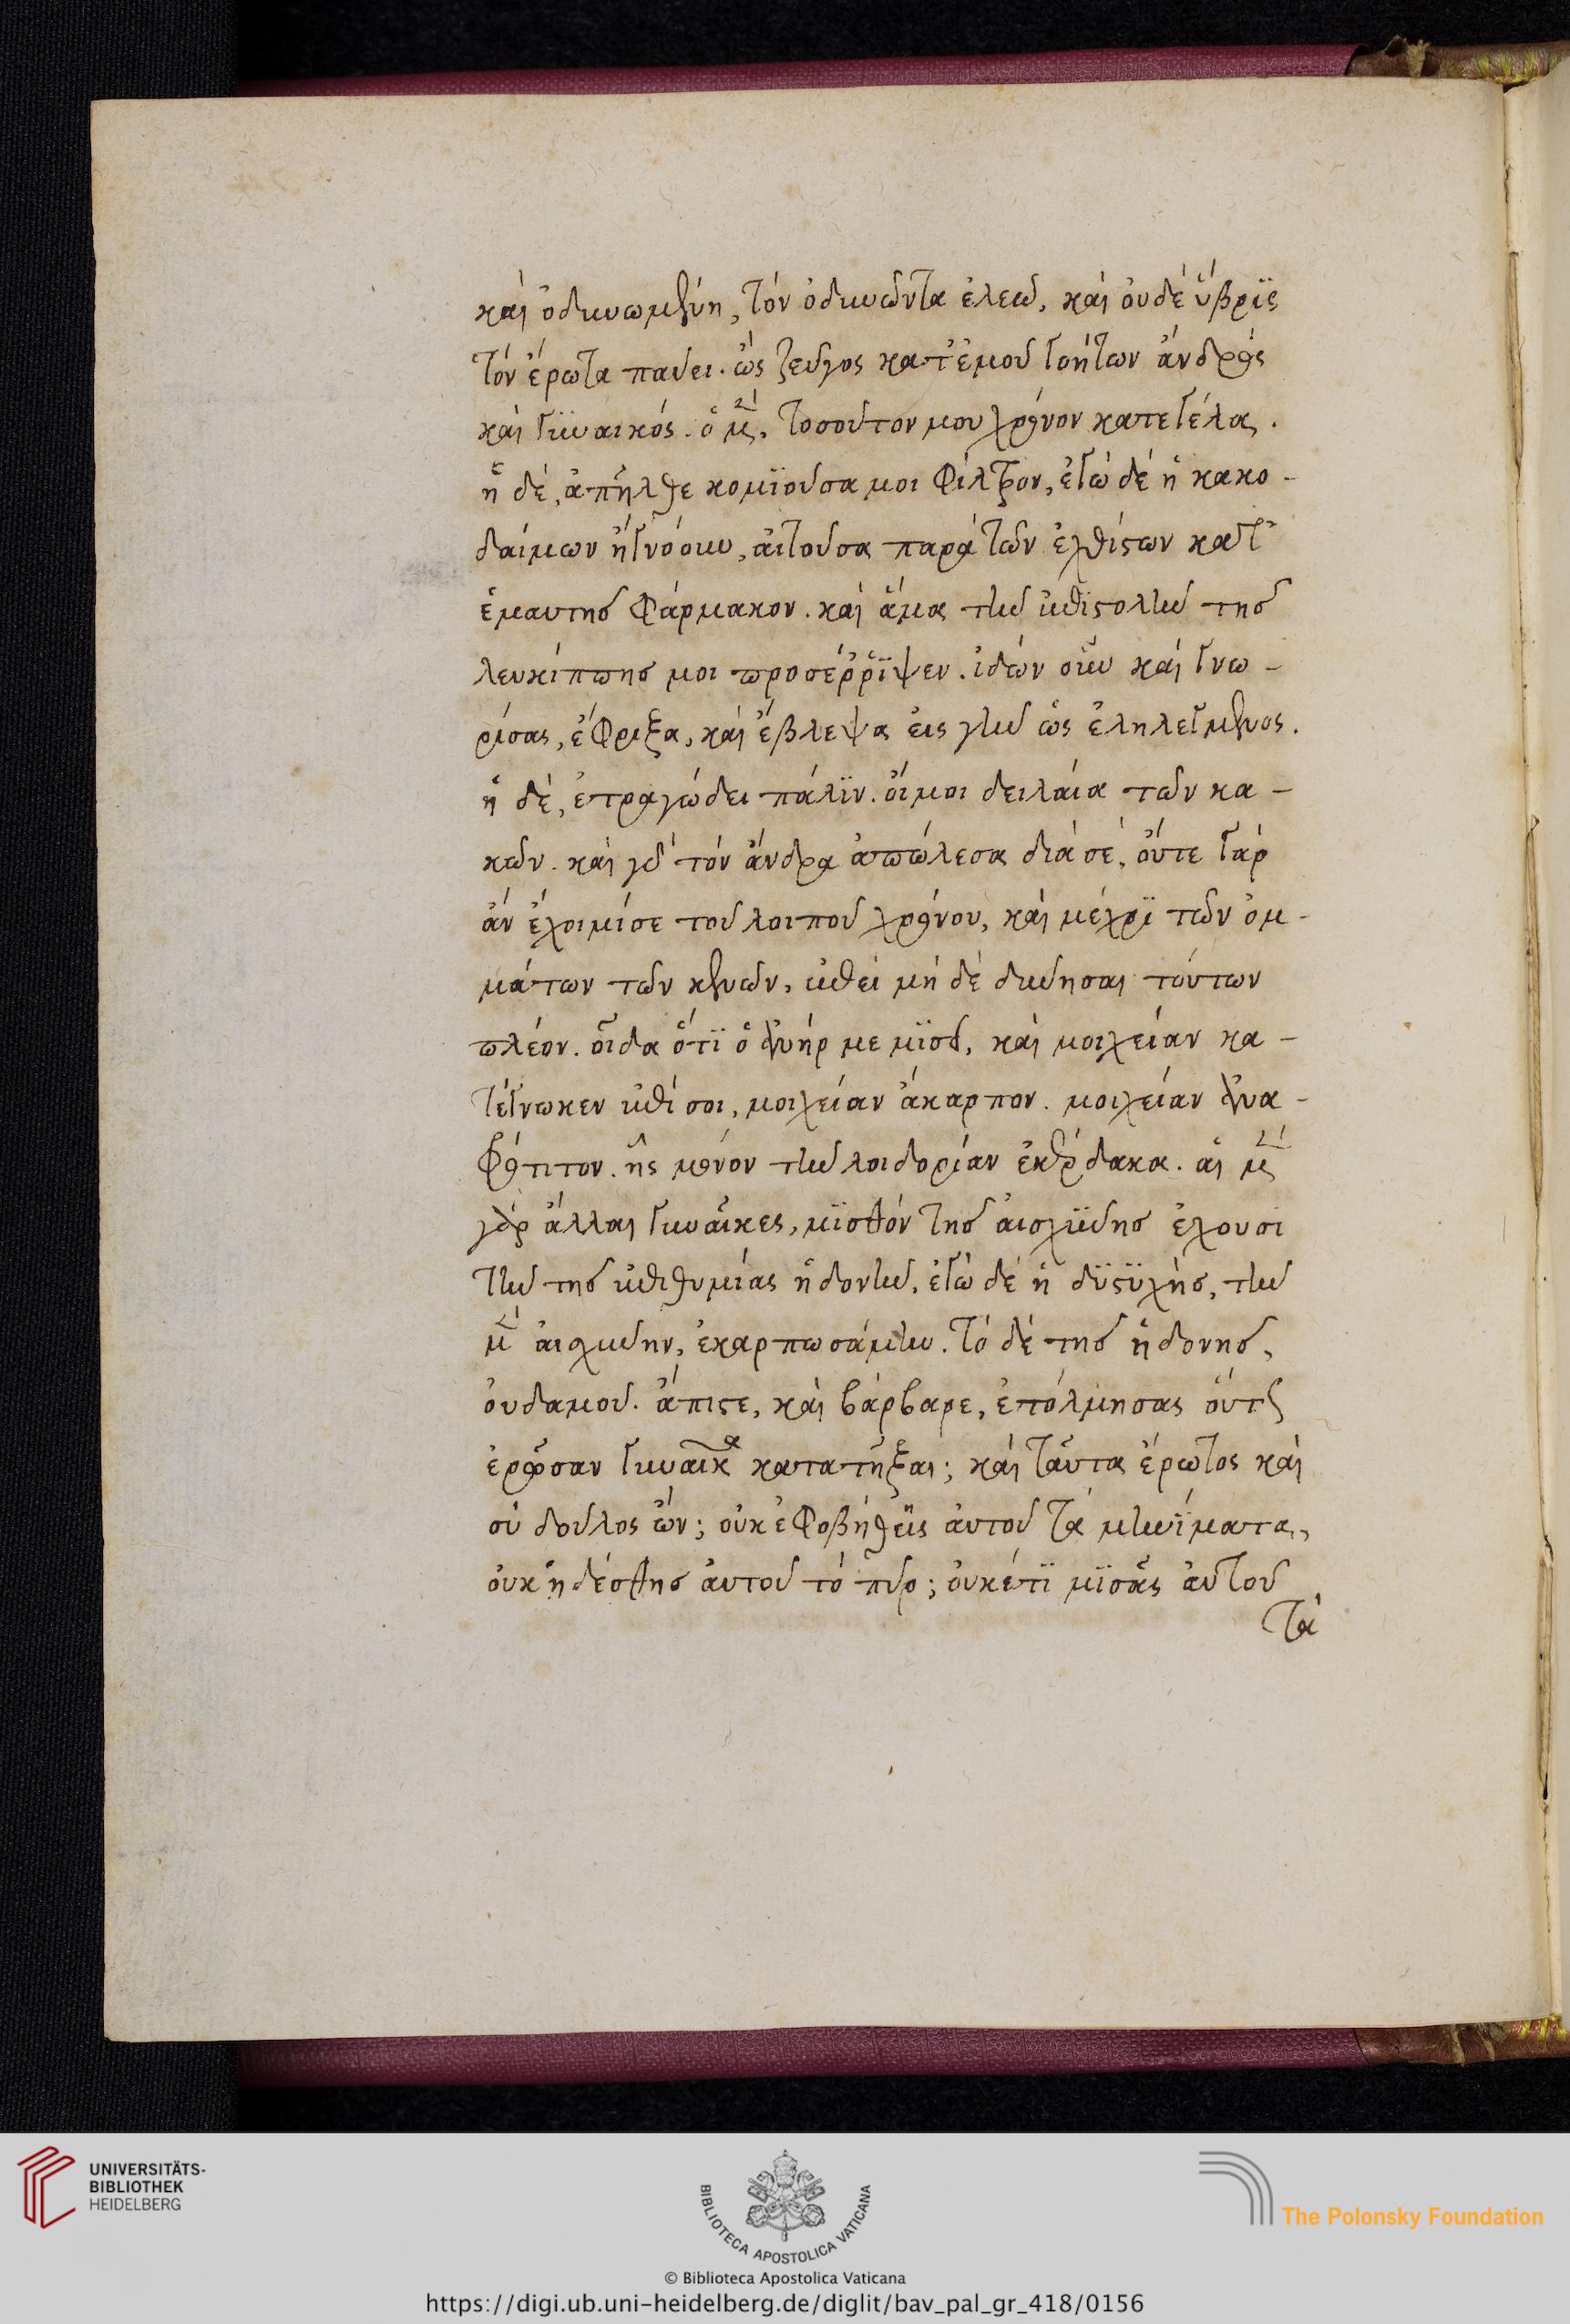 καὶ ὀδυνωμένη, τὸν ὀδυνῶντα ἐλεῶ, καὶ οὐδὲ ὕβρϊς
τὸν ἔρωτα παύει. ὦ ζεῦγος κατ' ἐμοῦ γοήτων ἀνδρὸς
καὶ γϋναικός. ὁ μὲν, τοσοῦτον μου χρόνον κατεγέλα.
ἡ δὲ, ἀπῆλθε κομϊοῦσα μοι φίλτρον, ἐγὼ δὲ ἡ κακο-
δαίμων ἠγνόουν, αἰτοῦσα παρὰ τῶν ἐχθίστων κατ'
ἐμαυτῆς φάρμακον. καὶ ἅμα τὴν ἐπϊστολὴν τῆς
λευκίππης μοι προσέῤῥϊψεν. ἰδὼν οὖν καὶ γνω-
ρίσας, ἔφριξα, καὶ ἔβλεψα εἰς γῆν ὡς ἐληλεγμένος.
ἡ δὲ, ἐτραγώδει πάλϊν. οἴμοι δειλαία τῶν κα-
κῶν. καὶ γὰρ τὸν ἄνδρα ἀπώλεσα διὰ σέ, οὔτε γὰρ
ἂν ἔχοιμί σε τοῦ λοιποῦ χρόνου, κἂν μέχρϊ τῶν ὀμ-
μάτων τῶν κενῶν, ἐπεὶ μὴ δὲ δυνήσαι τούτων
πλέον. οἶδα ὅτϊ ὁ ἀνήρ με μϊσεῖ, καὶ μοιχείαν κα-
τέγνωκεν ἐπί σοι, μοιχείαν ἄκαρπον. μοιχείαν ἀνα-
φρόδιτον. ἧς μόνον τὴν λοιδορίαν ἐκέρδακα. αἱ μὲν
γὰρ ἄλλαι γυναῖκες, μϊσθὸν τῆς αἰσχϋνης ἔχουσι
τὴν τῆς ἐπιθυμίας ἡδονήν, ἐγὼ δὲ ἡ δϋστϋχὴς, τὴν
μὲν αἰσχυνην, ἐκαρπωσάμην. τὸ δὲ τῆς ἡδονῆς,
οὐδαμοῦ. ἄπιστε, καὶ βάρβαρε, ἐτόλμησας οὕτως
ἐρῶσαν γυναῖκα κατατῆξαι; καὶ ταῦτα ἔρωτος καὶ
σὺ δοῦλος ὤν; οὐκ ἐφοβήθης αὐτοῦ τὰ μηνίματα,
οὐκ ᾐδέσθης αὐτοῦ τὸ πῦρ; οὐκ ἔτϊ μϊσᾶς αὐτοῦ
τὰ
UNIVERSITÄTS-
BIBLIOTHEK
HEIDELBERG
BIBLIOTECA APOSTOLICA VATICANA
The Polonsky Foundation
© Biblioteca Apostolica Vaticana
https://digi.ub.uni-heidelberg.de/diglit/bav_pal_gr_418/0156